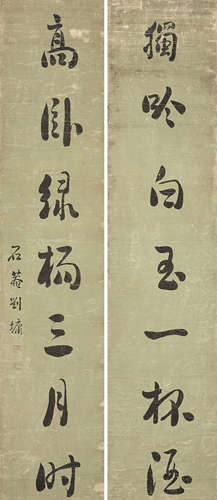 獨吟白玉一杯酒
高卧緑楊三月时
石菴劉墉